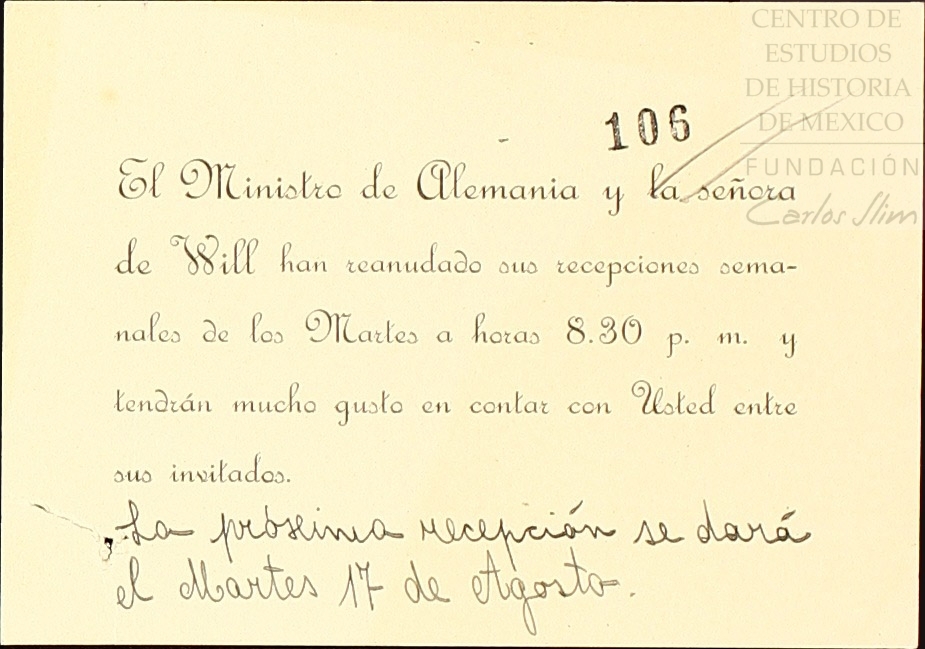 CENTRO DE
ESTUDIOS
DE HISTORIA
DE MEXICO
FUNDACIÓN
Carlos Slim
106
El Ministro de Alemania y la señora
de Will han reanudado sus recepciones sema-
nales de los Martes a horas 8.30 p. m. y
tendrán mucho gusto en contar con Usted entre
sus invitados.
La próxima recepción se dará
el Martes 17 de Agosto.